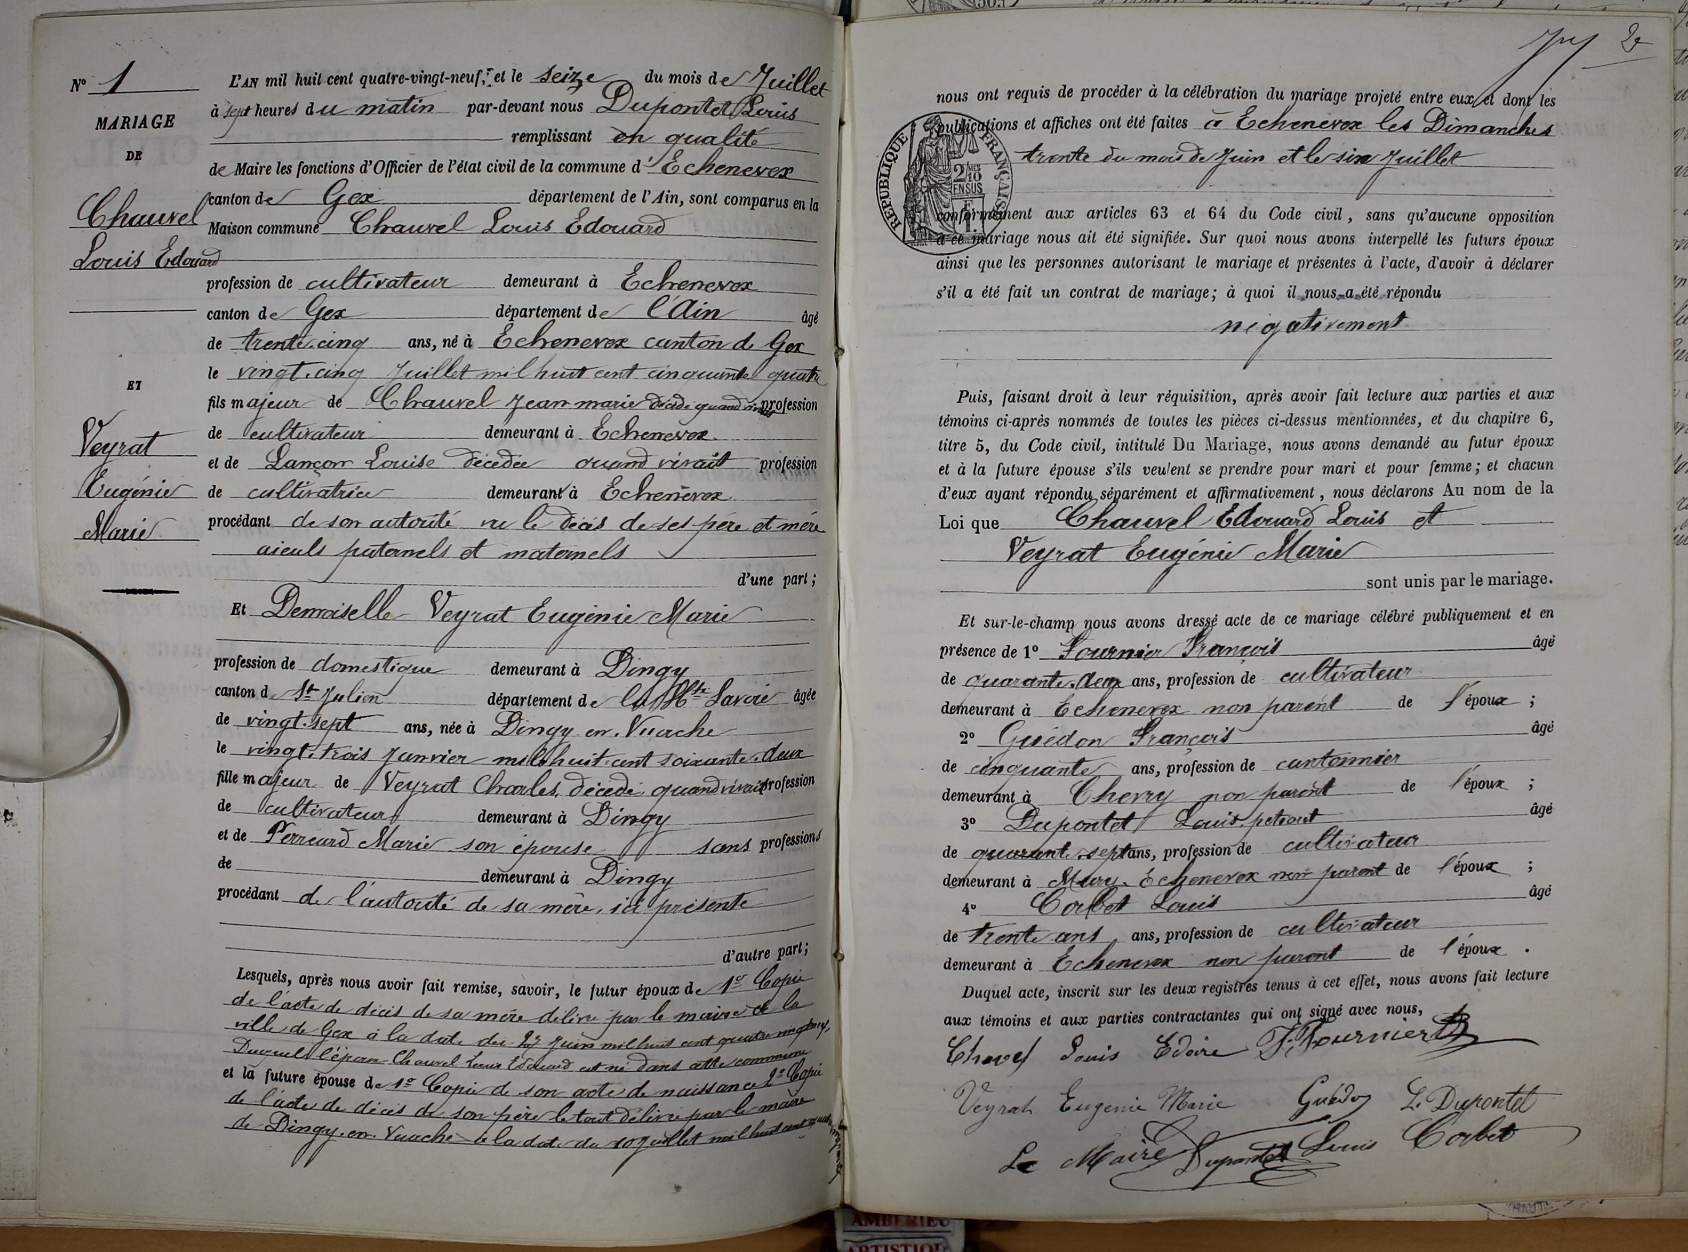 N° 1
MARIAGE
DE
Chauvel
Louis Edouard
ET
Veyrat
Eugénie
Marie
L'AN mil huit cent quatre-vingt-neuf, et le seize du mois de Juillet
à sept heures du matin par-devant nous Dupontet Louis
remplissant en qualité
de Maire les fonctions d'Officier de l'état civil de la commune d'Echenevex
canton de Gex département de l'Ain, sont comparus en la
Maison commune Chauvel Louis Edouard
profession de cultivateur demeurant à Echenevex
canton de Gex département de l'Ain âgé
de trente cinq ans, né à Echenevex canton de Gex
le vingt-cinq Juillet mil huit cent cinquante quatre
fils majeur de Chauvel Jean marie décédé quand vivait profession
de cultivateur demeurant à Echenevex
et de Lançon Louise décédée quand vivait profession
de cultivatrice demeurant à Echenevex
procédant de son autorité vu le décès de ses père et mère
aieuls paternels et maternels
d'une part;
Et Demoiselle Veyrat Eugénie Marie
profession de domestique demeurant à Dingy
canton de St Julien département de la Hte Savoie âgée
de vingt-sept ans, née à Dingy en Vuache
le vingt-trois Janvier mil huit cent soixante-deux
fille majeur de Veyrat Charles, décédé quand vivait profession
de cultivateur demeurant à Dingy
et de Perreard Marie son épouse sans professions
de demeurant à Dingy
procédant de l'autorité de sa mère, ici présente
d'autre part;
Lesquels, après nous avoir fait remise, savoir, le futur époux de 1° Copie
de l'acte de décès de sa mère délivré par le maire de la
ville de Gex à la date du Juin mil huit cent quatre vingt neuf,
l'époux Chauvel Louis Edouard est né dans cette commune
et la future épouse de 1° Copie de son acte de naissance 2° Copie
de l'acte de décès de son père le tout délivré par le maire
de Dingy en Vuache à la date du 10 Juillet mil huit cent quatre
2
nous ont requis de procéder à la célébration du mariage projeté entre eux et dont les
publications et affiches ont été faites à Echenevex les Dimanches
trente du mois de Juin et le six Juillet
REPUBLIQUE FRANÇAISE
2/10 EN SUS
conformément aux articles 63 et 64 du Code civil, sans qu'aucune opposition
à ce mariage nous ait été signifiée. Sur quoi nous avons interpellé les futurs époux
ainsi que les personnes autorisant le mariage et présentes à l'acte, d'avoir à déclarer
s'il a été fait un contrat de mariage; à quoi il nous a été répondu
négativement
Puis, faisant droit à leur réquisition, après avoir fait lecture aux parties et aux
témoins ci-après nommés de toutes les pièces ci-dessus mentionnées, et du chapitre 6,
titre 5, du Code civil, intitulé Du Mariage, nous avons demandé au futur époux
et à la future épouse s'ils veulent se prendre pour mari et pour femme; et chacun
d'eux ayant répondu séparément et affirmativement, nous déclarons Au nom de la
Loi que Chauvel Edouard Louis et
Veyrat Eugénie Marie
sont unis par le mariage.
Et sur-le-champ nous avons dressé acte de ce mariage célébré publiquement et en
présence de 1° Fournier François âgé
de quarante-deux ans, profession de cultivateur
demeurant à Echenevex non parent de l'époux ;
2° Guédon François âgé
de cinquante ans, profession de cantonnier
demeurant à Chevry non parent de l'époux ;
3° Dupontet Louis âgé
de quarante-sept ans, profession de cultivateur
demeurant à Mury Echenevex non parent de l'époux ;
4° Corbet Louis âgé
de trente ans, ans, profession de cultivateur
demeurant à Echenevex non parent de l'époux .
Duquel acte, inscrit sur les deux registres tenus à cet effet, nous avons fait lecture
aux témoins et aux parties contractantes qui ont signé avec nous,
Louis F. Fournier
Veyrat Eugenie Marie Guédon L. Dupontet
Le Maire Dupontet Louis Corbet
AMBERIEU